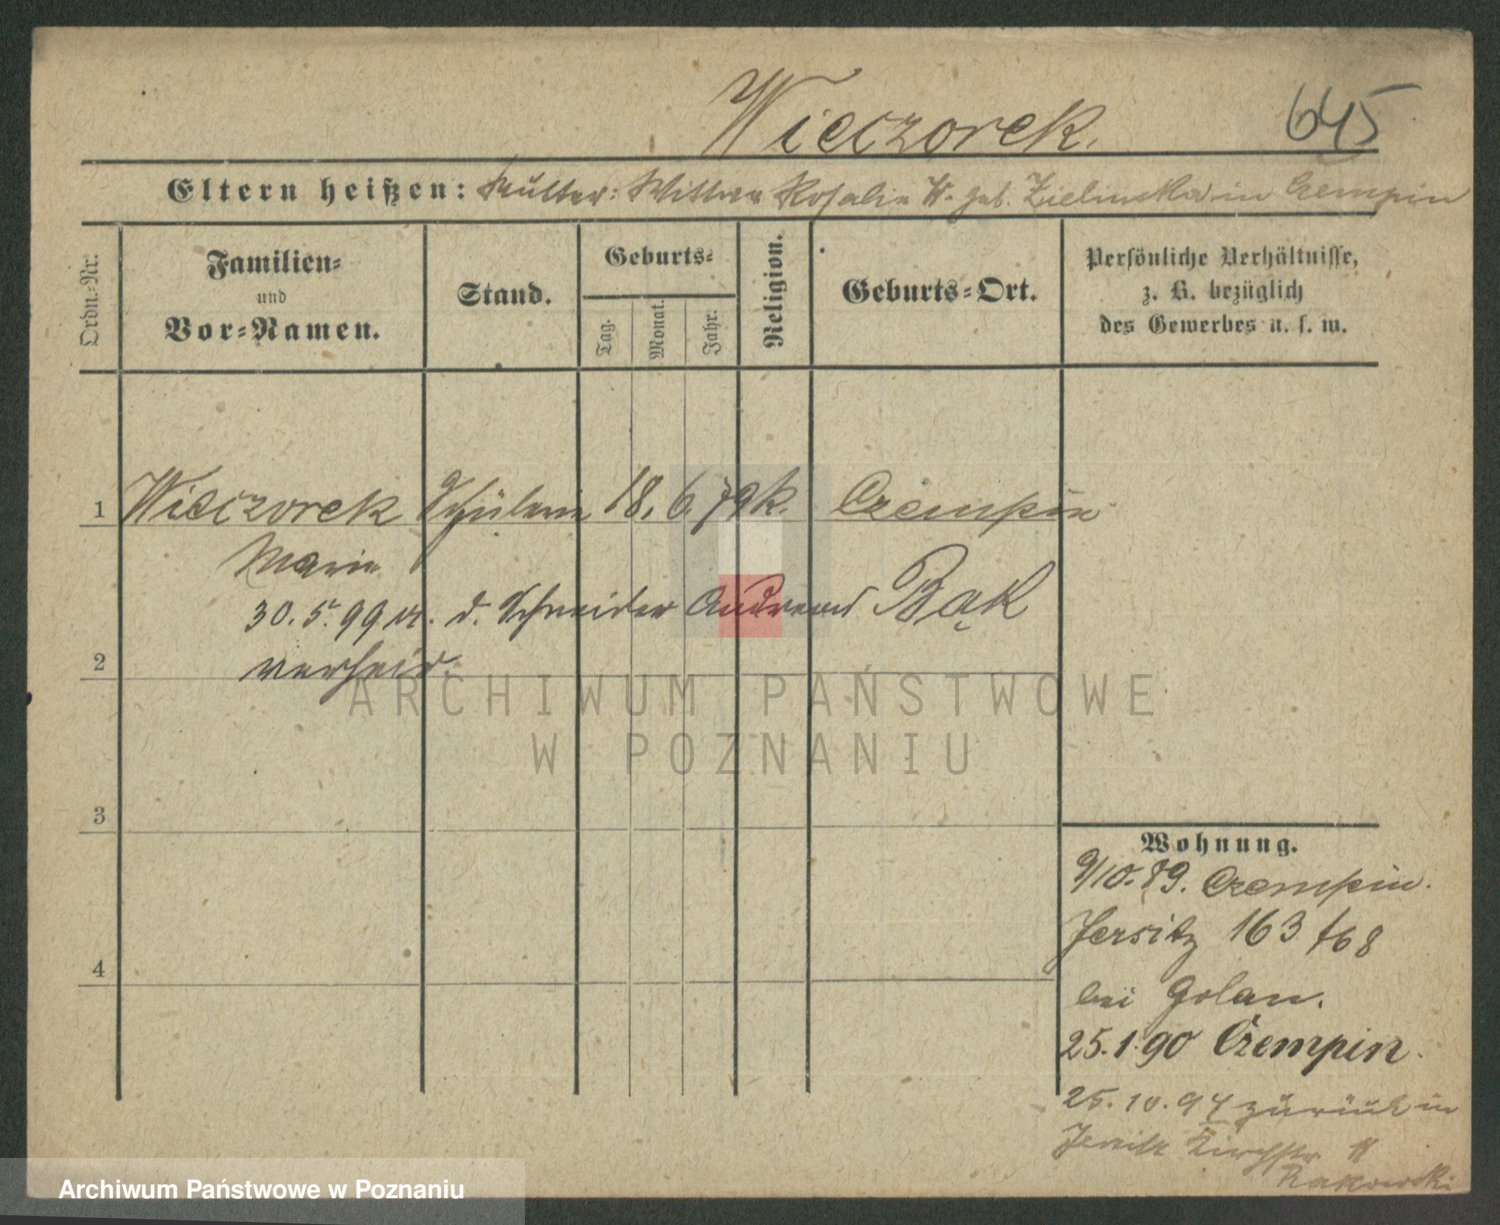 Wieczorek.
645
Eltern heißen: Mutter: Wittwe Rosalie W. geb. Zielinska in Czempin
Ordn.-Nr.
Familien-
und
Vor-Namen.
Stand.
Geburts-
Tag.
Monat.
Jahr.
Religion.
Geburts-Ort.
Persönliche Verhältnisse,
z. B. bezüglich
des Gewerbes u. s. w.
1 Wieczorek Schülerin 18. 6. 79 k. Czempin
Marie
30. 5. 99 m. d. Schneider Andreas Bąk
2 verheir.
ARCHIWUM PAŃSTWOWE
W POZNANIU
3
4
Wohnung.
9/10. 89. Czempin.
Jersitz 163 f68
bei Golan.
25. 1. 90 Czempin.
25. 10. 94 zurück in
Jersitz Kirchstr
Rakowski
Archiwum Państwowe w Poznaniu